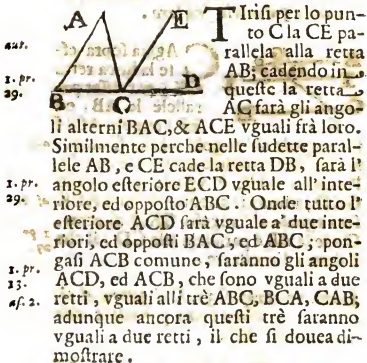 A E
B C D
Tirisi per lo pun-
to C la CE pa-
rallela alla retta
AB; cadendo in
queste la retta
AC farà gli ango-
li alterni BAC, & ACE vguali frà loro.
Similmente perche nelle sudette paral-
lele AB, e CE cade la retta DB, sarà l'
angolo esteriore ECD vguale all' inte-
riore, ed opposto ABC. Onde tutto l'
esteriore ACD sarà vguale a' due inte-
riori, ed opposti BAC, ed ABC; pon-
gasi ACB comune, saranno gli angoli
ACD, ed ACB, che sono vguali a due
retti, vguali alli trè ABC, BCA, CAB;
adunque ancora questi trè saranno
vguali a due retti, il che si douea di-
mostrare.
1. pr.
29.
1. pr.
29.
1. pr.
13.
as. 2.